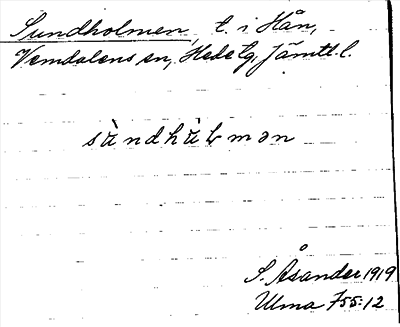 Sundholmen, t. i Hån,
Vemdalens sn, Hede tg, Jämtl. l.
sùndhùlmən
S. Åsander 1919
Ulma 755:12